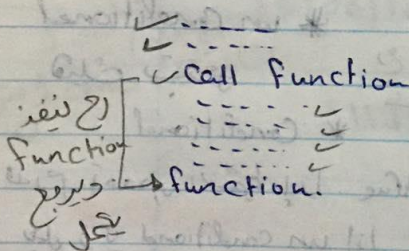 call function
رح ينفذ
function
ويرجع
يكمل
function.